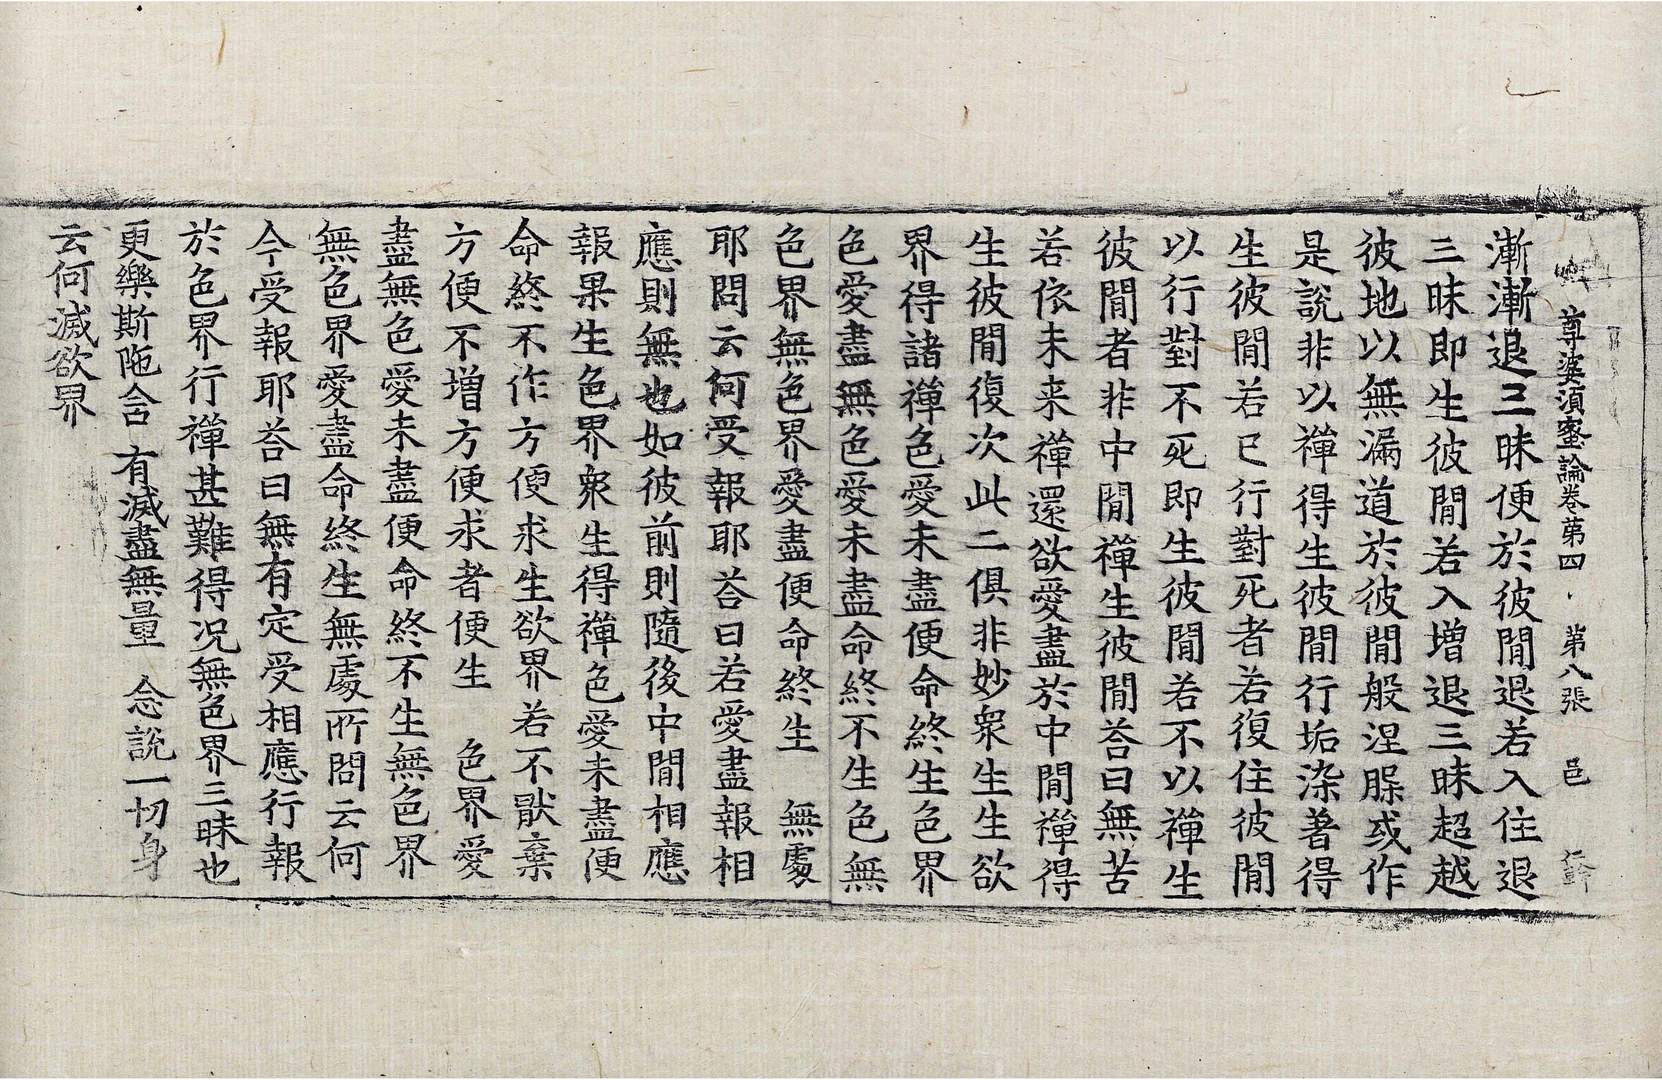 尊婆湏蜜論卷苐四 第八張 邑
漸漸退三昧便於彼閒退若入住退
三昧即生彼閒若入增退三昧超越
彼地以無漏道於彼閒般涅腂或作
是說非以禪得生彼閒行垢染著得
生彼閒若已行對死者若復住彼閒
以行對不死即生彼閒若不以禪生
彼閒者非中閒禪生彼閒荅曰無苦
若依未来禪還欲愛盡於中閒禪得
生彼閒復次此二俱非妙衆生生欲
界得諸禪色愛未盡便命終生色界
色愛盡無色愛未盡命終不生色無
色界無色界愛盡便命終生 無處
耶問云何受報耶荅曰若愛盡報相
應則無也如彼前則隨後中閒相應
報果生色界衆生得禪色愛未盡便
命終不作方便求生欲界若不猒棄
方便不增方便求者便生 色界愛
盡無色愛未盡便命終不生無色界
無色界愛盡命終生無處所問云何
今受報耶荅曰無有定受相應行報
於色界行禪甚難得况無色界三昧也
更樂斯陁含 有滅盡無量 念說一切身
云何滅欲界